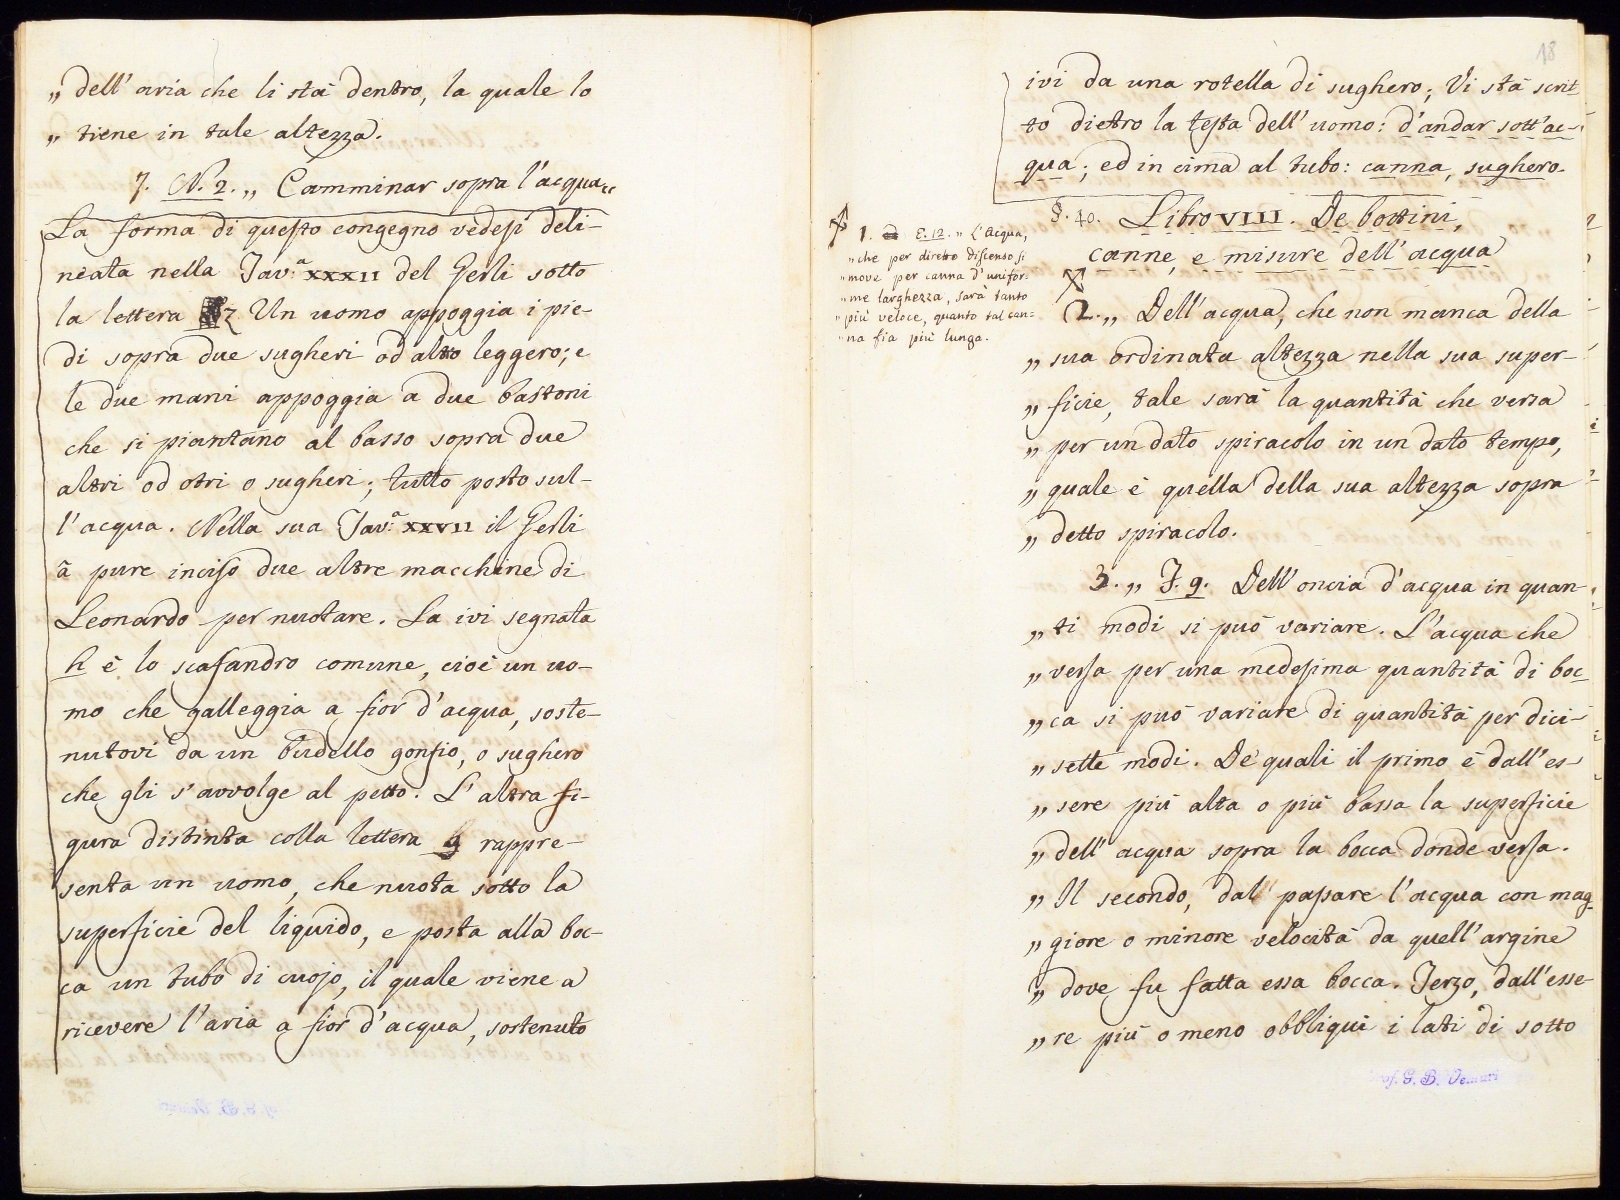 „ dell' aria che li stà dentro, la quale lo
„ tiene in tale altezza.
7. N. 2. „ Camminar sopra l'acqua „
La forma di questo congegno vedesi deli-
neata nella Tav.ª XXXII del Gerli sotto
la lettera z Un uomo appoggia i pie-
di sopra due sugheri od altro leggero; e
le due mani appoggia a due bastoni
che si piantano al basso sopra due
altri od otri o sugheri; tutto posto sul-
l'acqua. Nella sua Tav.ª XXVII il Gerli
à pure inciso due altre macchine di
Leonardo per nuotare. La ivi segnata
h è lo scafandro comune, cioè un uo-
mo che galleggia a fior d'acqua, soste-
nutovi da un budello gonfio, o sughero
che gli s'avvolge al petto. L'altra fi-
gura distinta colla lettera g rappre-
senta un uomo, che nuota sotto la
superficie del liquido, e posta alla boc-
ca un tubo di cuojo, il quale viene a
ricevere l'aria a fior d'acqua, sostenuto
18
ivi da una rotella di sughero; Vi stà scrit-
to dietro la testa dell'uomo: d'andar sott'ac-
qua; ed in cima al tubo: canna, sughero.
§. 40. Libro VIII. De bottini,
canne, e misure dell'acqua
1. E. 12. „ L'Acqua,
„ che per diretto discenso si
„ move per canna d'unifor-
„ me larghezza, sarà tanto
„ più veloce, quanto tal can-
„ na fia più lunga.
2. „ Dell'acqua, che non manca della
„ sua ordinata altezza nella sua super-
„ ficie, tale sarà la quantità che versa
„ per un dato spiracolo in un dato tempo,
„ quale è quella della sua altezza sopra
„ detto spiracolo.
3. „ F. 9. Dell'oncia d'acqua in quan-
„ ti modi si può variare. L'acqua che
„ versa per una medesima quantità di boc-
„ ca si può variare di quantità per dici-
„ sette modi. De quali il primo è dall'es-
„ sere più alta o più bassa la superficie
„ dell'acqua sopra la bocca donde versa.
„ Il secondo, dal passare l'acqua con mag-
„ giore o minore velocità da quell'argine
„ dove fu fatta essa bocca. Terzo, dall'esse-
„ re più o meno obbliqui i lati di sotto